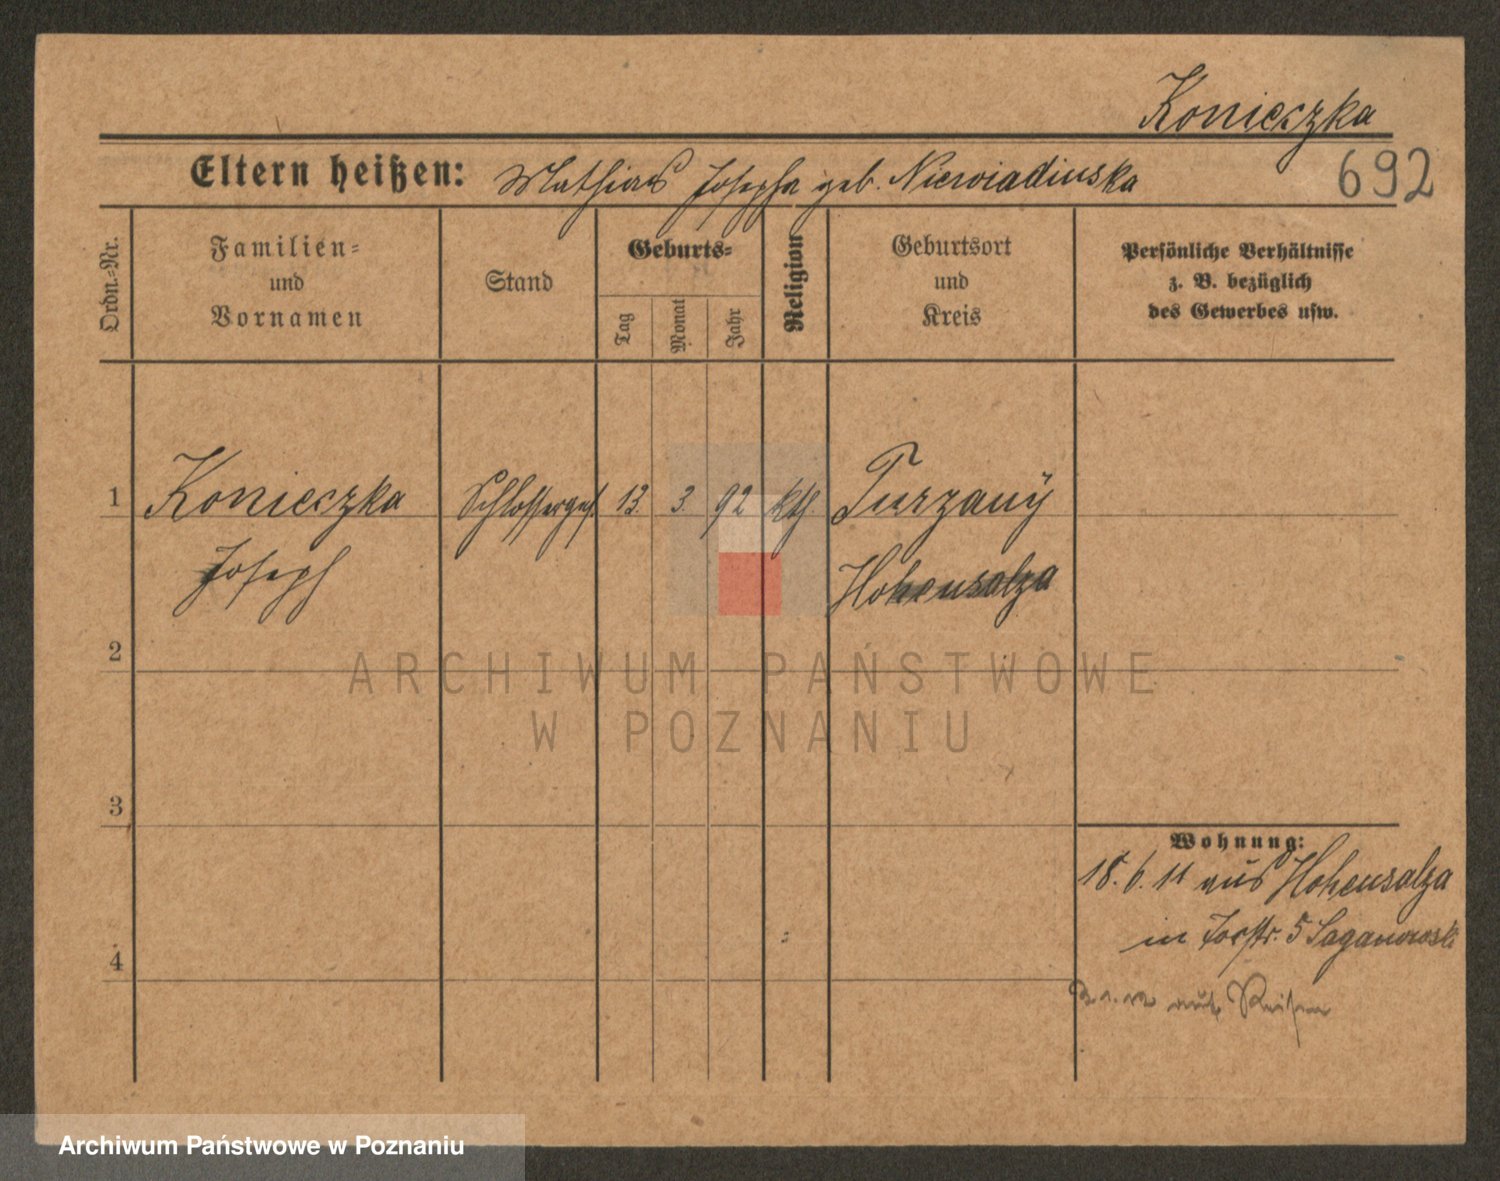 Konieczka
Eltern heißen: Mathias Josepha geb. Niewiadinska
692
Ordn.-Nr.
Familien-
und
Vornamen
Stand
Geburts-
Tag
Monat
Jahr
Religion
Geburtsort
und
Kreis
Persönliche Verhältnisse
z. B. bezüglich
des Gewerbes usw.
1 Konieczka Schlosserges. 13. 3. 92 kth. Turzany
Joseph Hohensalza
2
3
4
Wohnung:
18. 6. 11 aus Hohensalza
in 5 Saganowski
auf Reisen
ARCHIWUM PAŃSTWOWE
W POZNANIU
Archiwum Państwowe w Poznaniu